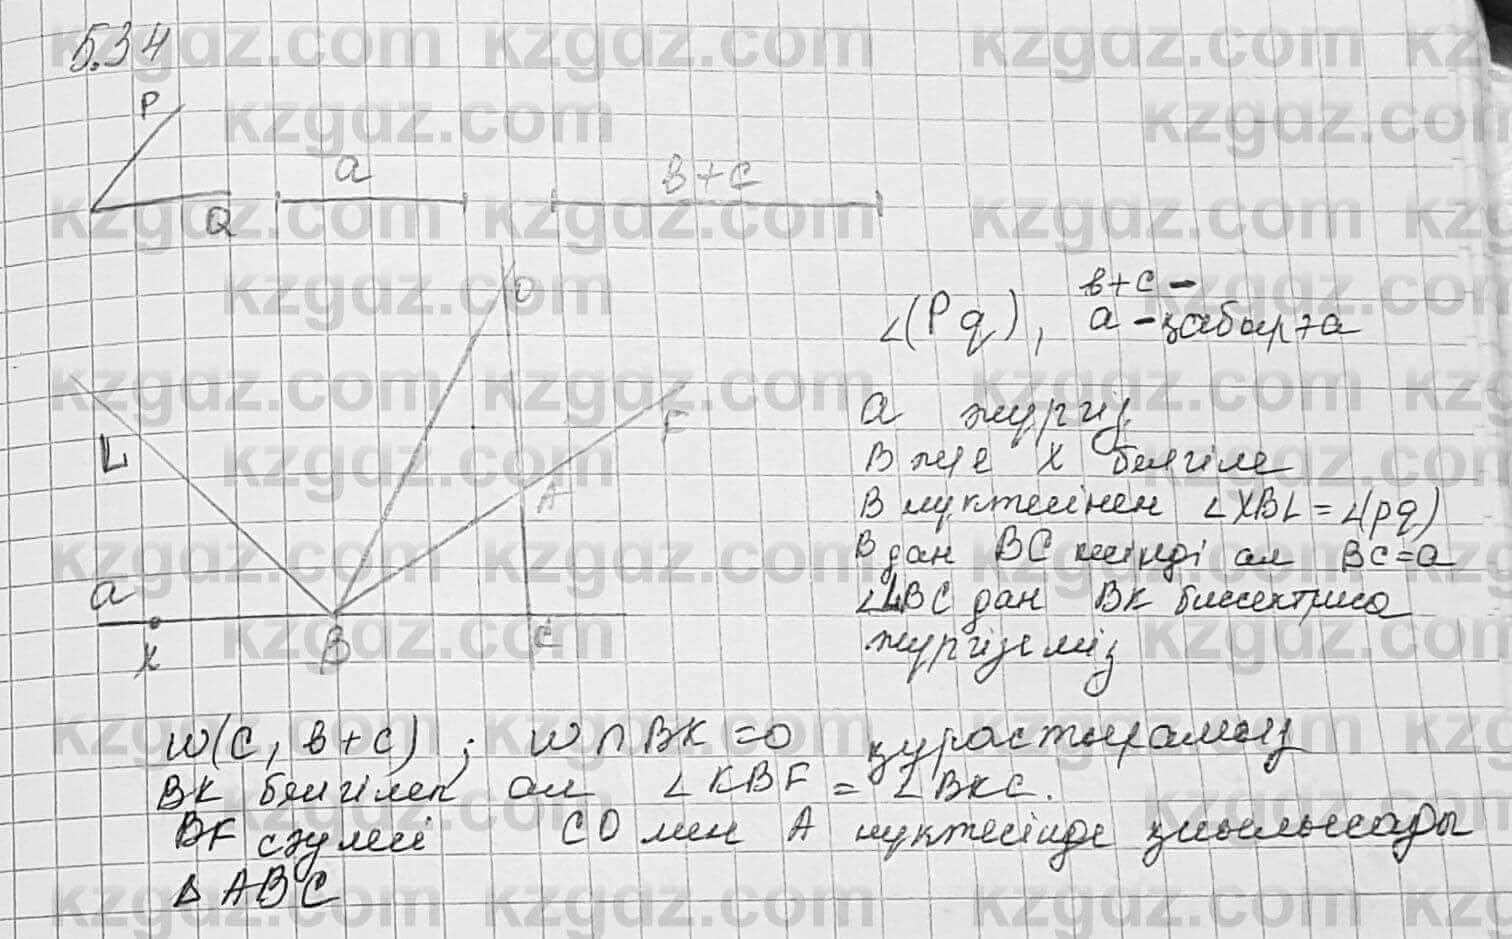 5.34
P
Q
a
в+с
O
L
F
A
a
x
B
C
∠(Pq), в+с –
a – қабырға
a жүргіз
B және X белгіле
B нүктесінен ∠XBL = ∠(pq)
B дан BC кесінді ал BC=a
∠LBC дан BK биссектриса
жүргіземіз
W(C, в+с) ; W∩BK=O құрастырамыз
BK белгілеп ал ∠KBF = ∠BKC.
BF сәулесі CO мен A нүктесінде қиылысады
△ABC
kzgdz.com